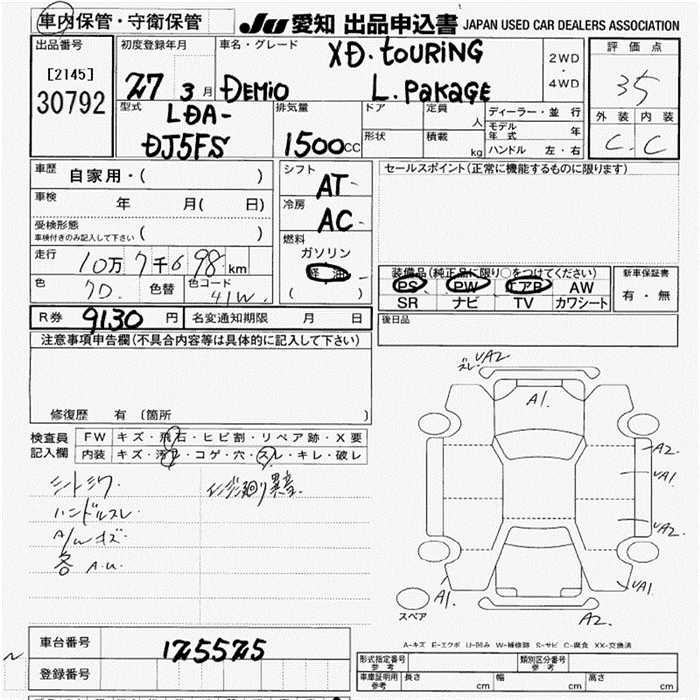 車内保管・守衛保管 JU 愛知 出品申込書 JAPAN USED CAR DEALERS ASSOCIATION
出品番号
[2145]
30792
初度登録年月
27 3 月
車名・グレード
XD. touring
DEMIO L. PAKAGE
2WD
・
4WD
評価点
3.5
外装 内装
C. C
型式
LDA-
DJ5FS
排気量
1500cc
ドア
形状
定員 人
積載 kg
ディーラー・並行
モデル年式 年
ハンドル 左・右
車歴 自家用・( )
車検 年 月( 日)
受検形態
車検付きのみ記入して下さい ( )
走行 10万 7千698 km
色 色替 色コード
41W
シフト
AT
冷房
AC
燃料
ガソリン
軽油
( )
セールスポイント(正常に機能するものに限ります)
装備品(純正品に限り〇をつけてください)
PS PW エアB AW
SR ナビ TV カワシート
新車保証書
有・無
R券 9130 円 名変通知期限 月 日
後日品
注意事項申告欄(不具合内容等は具体的に記入して下さい)
修復歴 有 〔箇所 〕
検査員
記入欄
FW キズ・飛石・ヒビ割・リペア跡・X要
内装 キズ・汚れ・コゲ・穴・スレ・キレ・破レ
シートシワ
ハンドルスレ
A/Wキズ
各 A.U.
エンジン廻り異音
ズレ UA2
A1.
A2.
UA1
UA2.
UA1
A1.
A2.
スペア
A-キズ E-エクボ U-凹み W-補修跡 S-サビ C-腐食 XX-交換済
車台番号 125525
登録番号
形式指定番号
参考
類別区分番号
参考
車庫証明用
参考
長さ cm 幅 cm 高さ cm